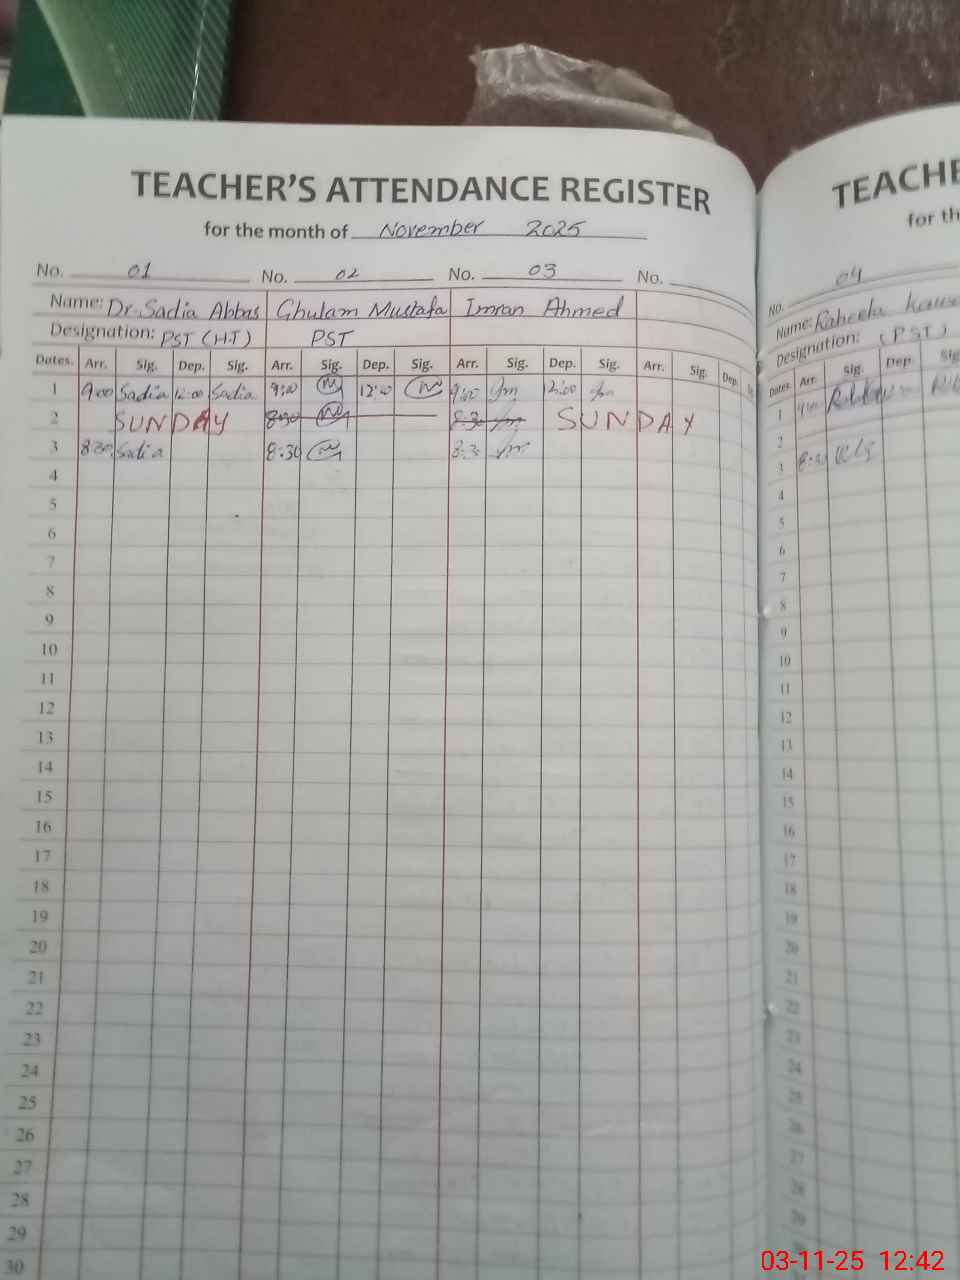 TEACHER'S ATTENDANCE REGISTER
for the month of November 2025
No. 01 No. 02 No. 03 No.
Name: Dr. Sadia Abbas Ghulam Mustafa Imran Ahmed
Designation: PST (H.T) PST
Dates. Arr. Sig. Dep. Sig. Arr. Sig. Dep. Sig. Arr. Sig. Dep. Sig. Arr. Sig. Dep.
1 9:00 Sadia 12:00 Sadia 9:00 12:00 9:00 12:00
2 SUNDAY 8:30 8:30 SUNDAY
3 8:30 Sadia 8:30 8:30
4
5
6
7
8
9
10
11
12
13
14
15
16
17
18
19
20
21
22
23
24
25
26
27
28
29
30
TEACHE
for th
No. 04
Name: Raheela
Designation: (PST)
Dates. Arr. Sig. Dep.
1
2
3 8:30
4
5
6
7
8
9
10
11
12
13
14
15
16
17
18
19
20
21
22
23
24
25
26
27
28
29
03-11-25 12:42